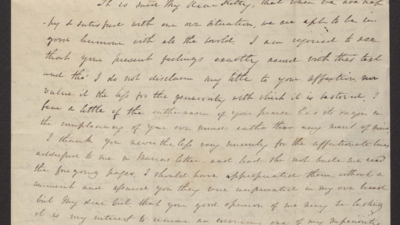 It is said my dear Hetty, that when we are hap-
py & satisfied with our own situation, we are apt to be in
good humour with all the world. I am rejoiced to see
that your present feelings accord with this
and tho' I do not disclaim my title to your affection, nor
value it the less for the generosity with which it is bestowed, I
fear a little of the enthusiasm of your praise has its origin in
the complacency of your own mind rather than any merit of mine
I thank you nevertheless very sincerely for the affectionate lines
addressed to me in Maria's letter, and had she not made me read
the foregoing pages, I should have appropriated them without a
and assured you they were reciprocated in my own breast
but my dear that your good opinion of me may be lasting
it is my interest to remain an of my